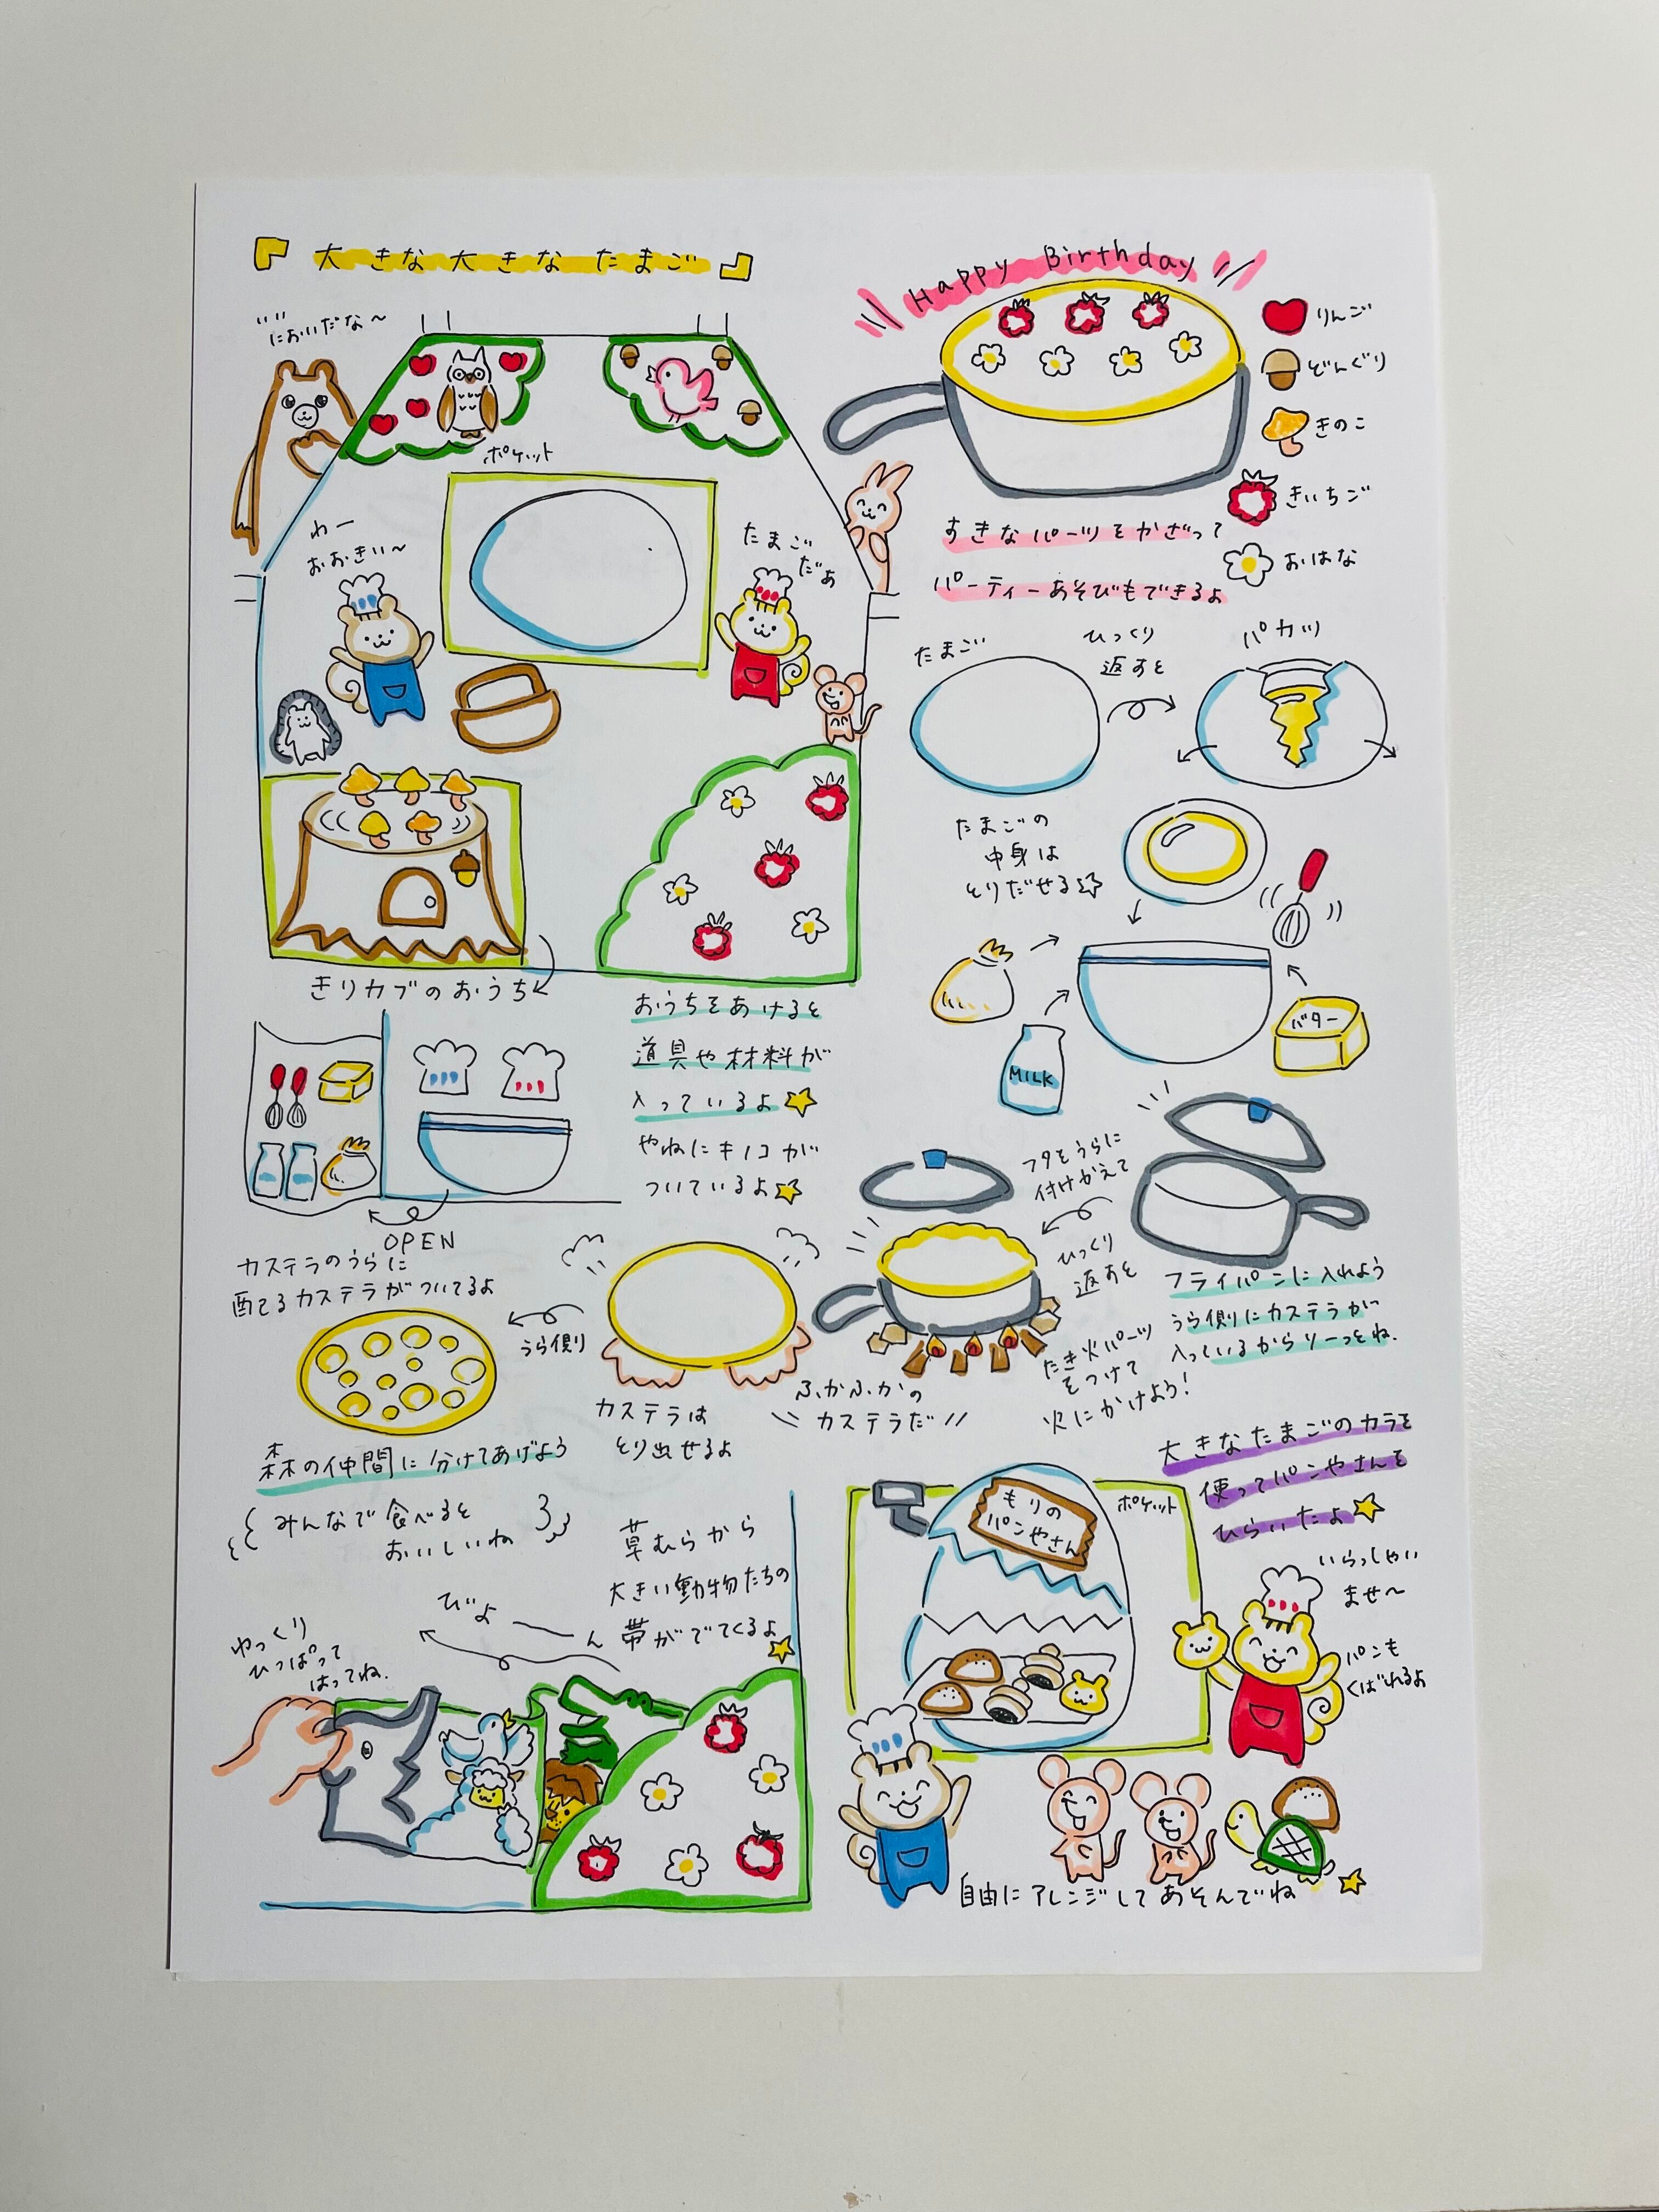 『大きな大きなたまご』
においだな〜
ポケット
わー
おおきい〜
たまご
だぁ
きりカブのおうち
おうちをあけると
道具や材料が
入っているよ
やねにキノコが
ついているよ
OPEN
Happy Birthday
りんご
どんぐり
きのこ
きいちご
おはな
すきなパーツをかざって
パーティーあそびもできるよ
たまご
ひっくり
返すと
パカッ
たまごの
中身は
とりだせる☆
MILK
バター
フタをうらに
付けかえて
ひっくり
返すと
フライパンに入れよう
うら側にカステラが
入っているからリーっとね.
たき火パーツ
をつけて
火にかけよう!
ふかふかの
カステラだ
カステラは
とり出せるよ
うら側
カステラのうらに
配てるカステラがついてるよ
森の仲間に分けてあげよう
みんなで食べると
おいしいね
草むらから
大きい動物たちの
帯がでてくるよ
びよーーん
ゆっくり
ひっぱって
はってね.
大きなたまごのカラを
使ってパンやさんを
ひらいたよ
ポケット
もりの
パンやさん
いらっしゃい
ませ〜
パンも
くばれるよ
自由にアレンジしてあそんでね